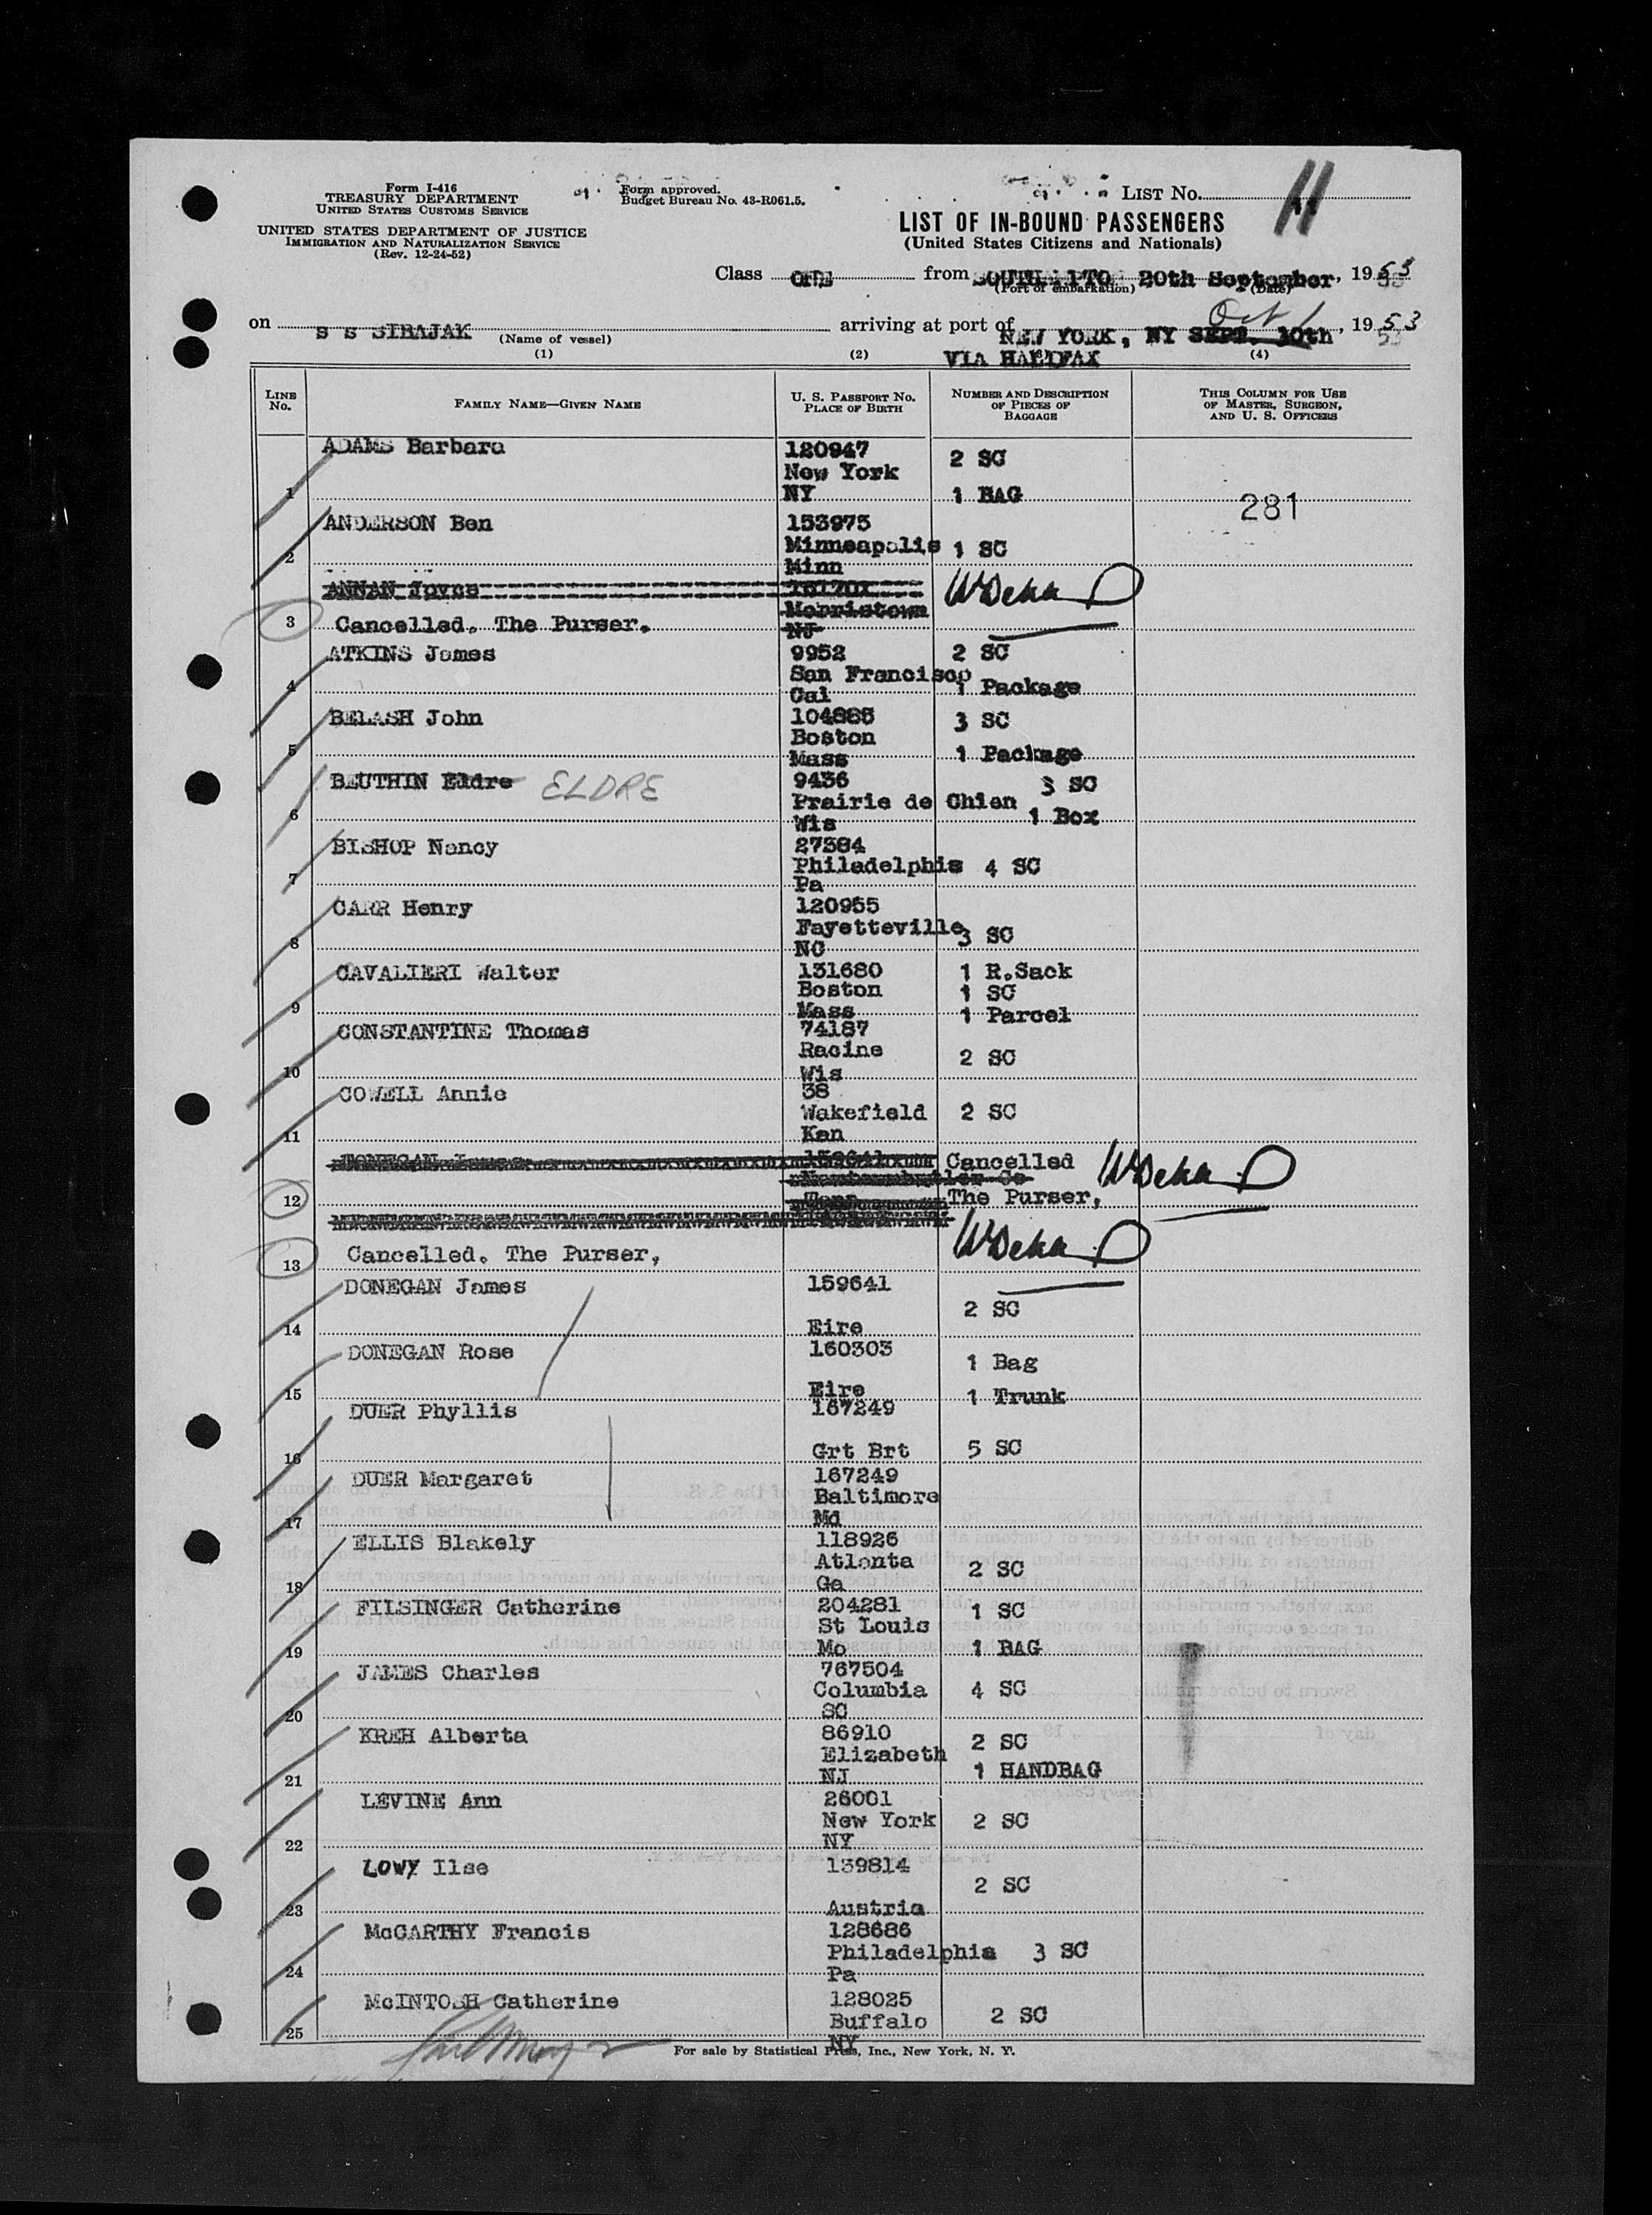 Form I-416
TREASURY DEPARTMENT
UNITED STATES CUSTOMS SERVICE
UNITED STATES DEPARTMENT OF JUSTICE
IMMIGRATION AND NATURALIZATION SERVICE
(Rev. 12-24-52)
Form approved.
Budget Bureau No. 43-R061.5.
LIST No. 11
LIST OF IN-BOUND PASSENGERS
(United States Citizens and Nationals)
Class ONE from 20th September, 1953
(Port of embarkation) (Date)
on S S SIBAJAK arriving at port of NEW YORK, NY SEPT. 30th Oct 1, 1953
(Name of vessel)
VIA HALIFAX
(1) (2) (4)
LINE No.
FAMILY NAME—GIVEN NAME
U. S. PASSPORT NO. PLACE OF BIRTH
NUMBER AND DESCRIPTION OF PIECES OF BAGGAGE
THIS COLUMN FOR USE OF MASTER, SURGEON, AND U. S. OFFICERS
ADAMS Barbara 120947 2 SC
New York
1 NY 1 BAG 281
ANDERSON Ben 153975
Minneapolis 1 SC
2 Minn
ANNAN Joyce
Morristown
3 Cancelled. The Purser. NJ
ATKINS James 9952 2 SC
San Francisco
4 Cal 1 Package
BELASH John 104885 3 SC
Boston
5 Mass 1 Package
BEUTHIN Eldre ELDRE 9436 3 SC
Prairie de Chien
6 Wis 1 Box
BISHOP Nancy 27384
Philadelphia 4 SC
7 Pa
CARR Henry 120955
Fayetteville 3 SC
8 NC
CAVALIERI Walter 131680 1 R.Sack
Boston 1 SC
9 Mass 1 Parcel
CONSTANTINE Thomas 74187
Racine 2 SC
10 Wis
COWELL Annie 38
Wakefield 2 SC
11 Kan
DONEGAN James 159641 Cancelled
12 The Purser,
13 Cancelled. The Purser,
DONEGAN James 159641
2 SC
14 Eire
DONEGAN Rose 160303
1 Bag
15 Eire 1 Trunk
DUER Phyllis 167249
16 Grt Brt 5 SC
DUER Margaret 167249
Baltimore
17 Md
ELLIS Blakely 118926
Atlanta 2 SC
18 Ga
FILSINGER Catherine 204281 1 SC
St Louis
19 Mo 1 BAG
JAMES Charles 767504
Columbia 4 SC
20 SC
KREH Alberta 86910 2 SC
Elizabeth
21 NJ 1 HANDBAG
LEVINE Ann 26001
New York 2 SC
22 NY
LOWY Ilse 139814
2 SC
23 Austria
McCARTHY Francis 128686
Philadelphia 3 SC
24 Pa
McINTOSH Catherine 128025
Buffalo 2 SC
25 NY
For sale by Statistical Press, Inc., New York, N. Y.